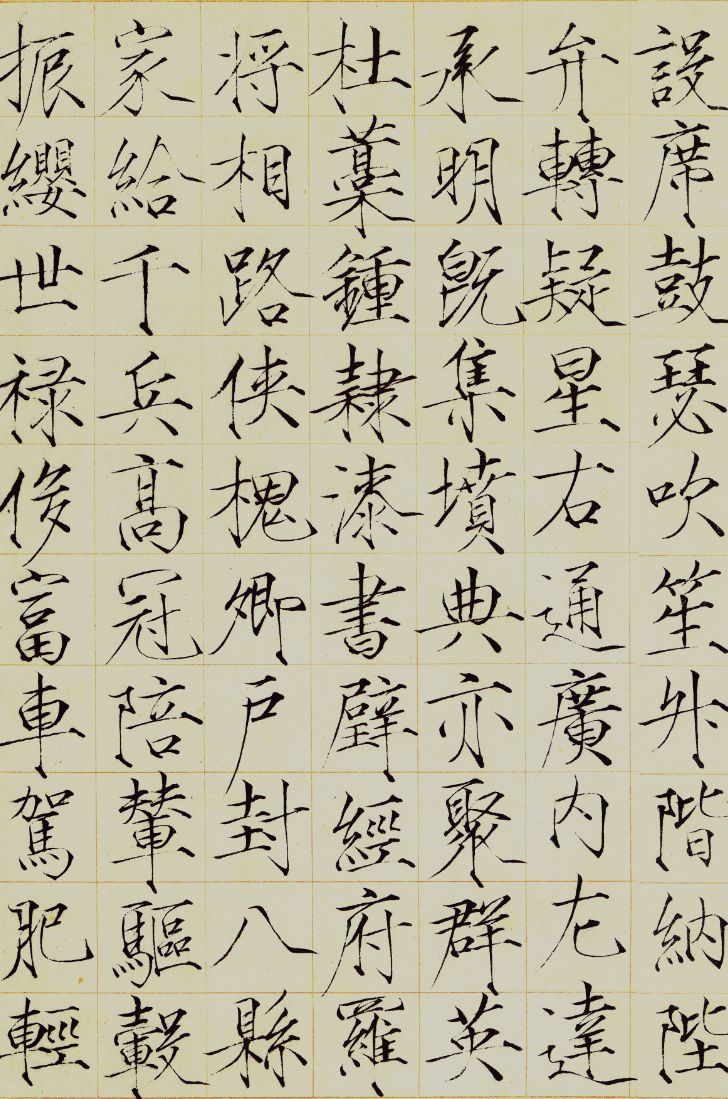 設席鼓瑟吹笙外階納陛
弁轉疑星右通廣内左達
承明既集墳典亦聚群英
杜藁鍾隷漆書壁經府羅
将相路俠槐卿户封八縣
家給千兵高冠陪輦驅轂
振纓世禄侈富車駕肥輕